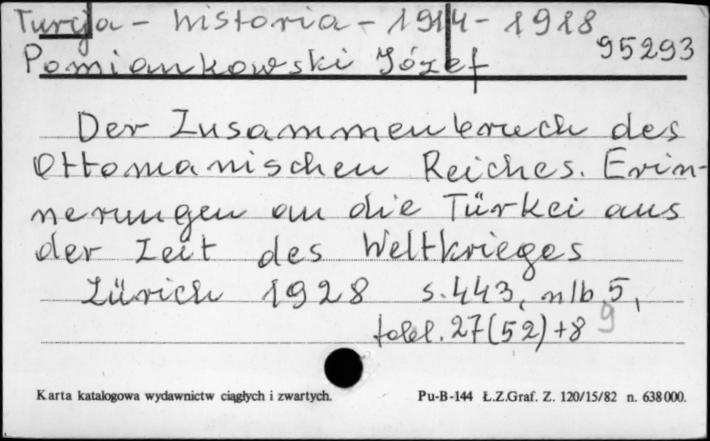 Turcja - historia - 1914 - 1918
Pomiankowski Józef 95293
Der Zusammenbruch des
Ottomanischen Reiches. Erin-
nerungen an die Türkei aus
der Zeit des Weltkrieges
Zürich 1928 s. 443, nlb 5,
tabl. 27 (52) + 8 9
Karta katalogowa wydawnictw ciągłych i zwartych. Pu-B-144 Ł.Z.Graf. Z. 120/15/82 n. 638000.